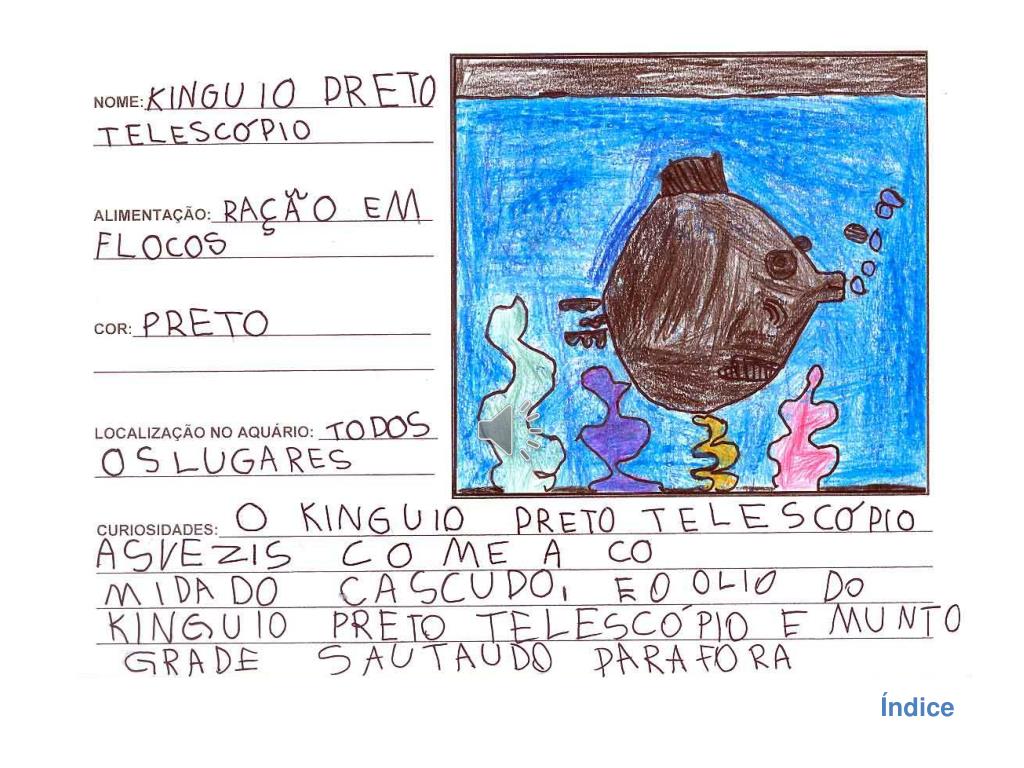 NOME: KINGUIO PRETO
TELESCÓPIO
ALIMENTAÇÃO: RAÇÃO EM
FLOCOS
COR: PRETO
LOCALIZAÇÃO NO AQUÁRIO: TODOS
OS LUGARES
CURIOSIDADES: O KINGUIO PRETO TELESCÓPIO
ASVEZIS COME A CO
MIDA DO CASCUDO, E O OLIO DO
KINGUIO PRETO TELESCÓPIO E MUNTO
GRADE SAUTAUDO PARAFORA
Índice